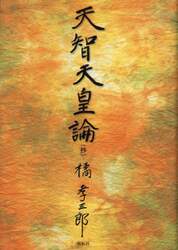 天智天皇論
橘孝三郎